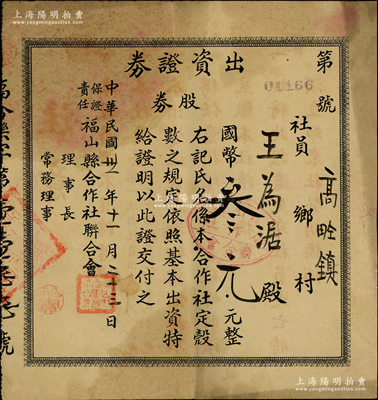 上海陽明拍賣
出資證券
股券
第 號
01166
社員 鄉 村
高疃鎮
王為湛 殿
國幣叁元.元整
右記氏名係本合作社定殼
數之規定依照基本出資特
給證明以此證交付之
中華民國卅一年十一月二十三日
保證
責任
福山縣合作社聯合會
理事長
常務理事
號
上海陽明拍賣